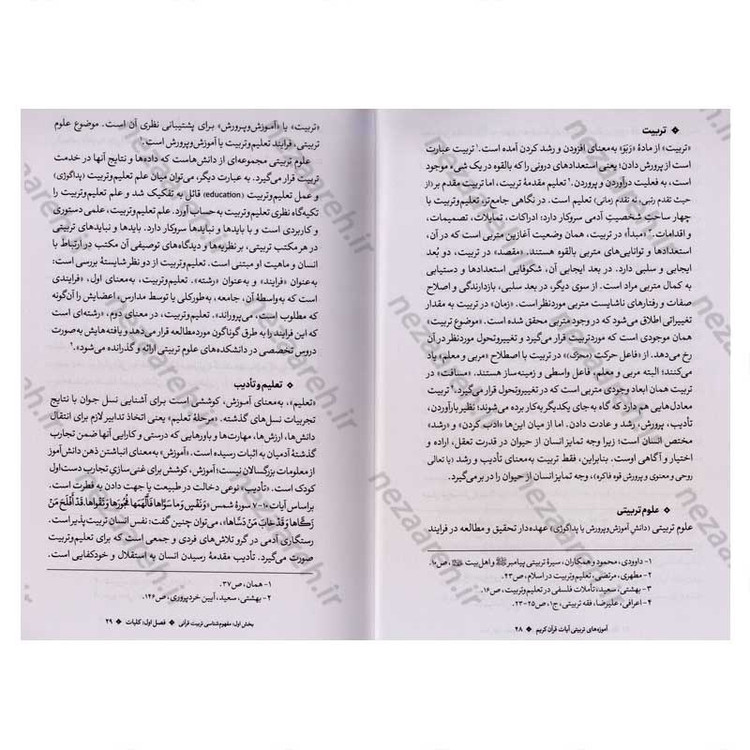 ❖ تربیت
«تربیت» از مادهٔ «رَبَوَ» به‌معنای افزودن و رشد کردن آمده است.۱ تربیت عبارت
است از پرورش دادن؛ یعنی استعدادهای درونی را که بالقوه در یک شیء موجود
است، به فعلیت درآوردن و پروردن.۲ تعلیم مقدمهٔ تربیت، اما تربیت مقدم بر (از
حیث تقدم رتبی، نه تقدم زمانی) تعلیم است. در نگاهی جامع‌تر، تعلیم‌وتربیت با
چهار ساحتِ شخصیتِ آدمی سروکار دارد: ادراکات، تمایلات، تصمیمات،
و اقدامات.۳ «مبدأ» در تربیت، همان وضعیت آغازین متربی است که در آن،
استعدادها و توانایی‌های متربی بالقوه هستند. «مقصد» در تربیت، دو بُعد
ایجابی و سلبی دارد. در بعد ایجابی آن، شکوفایی استعدادها و دستیابی
به کمال متربی مراد است. از سوی دیگر، در بعد سلبی، بازدارندگی و اصلاح
صفات و رفتارهای ناشایست متربی موردنظر است. «زمان» در تربیت به مقدار
تغییراتی اطلاق می‌شود که در وجود متربی محقق شده است. «موضوع تربیت»
همان موجودی است که مورد تربیت قرار می‌گیرد و تغییروتحول موردنظر در آن
رخ می‌دهد. از «فاعل حرکت (محرّک)» در تربیت با اصطلاح «مربی و معلم» یاد
می‌کنند؛ البته مربی و معلم، فاعل واسطی و زمینه‌ساز هستند. «مسافت» در
تربیت همان ابعاد وجودی متربی است که در تغییروتحول قرار می‌گیرد.۴ تربیت
معادل‌هایی هم دارد که گاه به‌جای یکدیگر به‌کار برده می‌شوند؛ نظیر بارآوردن،
پرورش، رشد و عادت دادن. اما از میان این‌ها «ادب کردن» و «رشد»
مختص انسان است؛ زیرا وجه تمایز انسان از حیوان در قدرت تعقل، اراده و
اختیار و آگاهی اوست. بنابراین، فقط تربیت به‌معنای تأدیب و رشد (یا تعالی
روحی و معنوی و پرورش قوه فاکره)، وجه تمایز انسان از حیوان را در بر می‌گیرد.
❖ علوم تربیتی
علوم تربیتی (دانش آموزش‌وپرورش یا پداگوژی) عهده‌دار تحقیق و مطالعه در فرایند
۱- داوودی، محمود و همکاران، سیرهٔ تربیتی پیامبر ﷺ و اهل‌بیت
۲- مطهری، مرتضی، تعلیم‌وتربیت در اسلام، ص۴۳.
۳- بهشتی، سعید، تأملات فلسفی در تعلیم‌وتربیت، ص۱۶.
۴- اعرافی، علیرضا، فقه تربیتی، ج۱، ص۲۵-۲۳.
آموزه‌های تربیتی آیات قرآن کریم ❖ ۲۸
«تربیت» یا «آموزش‌وپرورش» برای پشتیبانی نظری آن است. موضوع علوم
تربیتی، فرایند تعلیم‌وتربیت یا آموزش‌وپرورش است.۱
علوم تربیتی مجموعه‌ای از دانش‌هاست که داده‌ها و نتایج آنها در خدمت
تربیت قرار می‌گیرد. به عبارت دیگر، می‌توان میان علم تعلیم‌وتربیت (پداگوژی)
و عمل تعلیم‌وتربیت (education) قائل به تفکیک شد و علم تعلیم‌وتربیت را
تکیه‌گاه نظری تعلیم‌وتربیت به حساب آورد. علم تعلیم‌وتربیت، علمی دستوری
و کاربردی است و با بایدها و نبایدها سروکار دارد. بایدها و نبایدهای تربیتی
در هر مکتب تربیتی، بر نظریه‌ها و دیدگاه‌های توصیفی آن مکتب در ارتباط با
انسان و ماهیت او مبتنی است. تعلیم‌وتربیت از دو نظر شایستهٔ بررسی است:
به‌عنوان «فرایند» و به‌عنوان «رشته». تعلیم‌وتربیت، به‌معنای اول، «فرایندی
است که به‌واسطهٔ آن، جامعه، به‌طورکلی یا توسط مدارس، اعضایش را آن‌گونه
که مطلوب است، می‌پروراند». تعلیم‌وتربیت، در معنای دوم، «رشته‌ای است
که این فرایند را به طرق گوناگون مورد مطالعه قرار می‌دهد و یافته‌هایش به‌صورت
دروس تخصصی در دانشکده‌های علوم تربیتی ارائه و گذرانده می‌شود».۲
❖ تعلیم و تأدیب
«تعلیم»، به‌معنای آموزش، کوششی است برای آشنایی نسل جوان با نتایج
تجربیات نسل‌های گذشته. «مرحلهٔ تعلیم» یعنی اتخاذ تدابیر لازم برای انتقال
دانش‌ها، ارزش‌ها، مهارت‌ها و باورهایی که درستی و کارایی آنها ضمن تجارب
گذشتهٔ آدمیان به اثبات رسیده است. «آموزش» به‌معنای انباشتن ذهن دانش‌آموز
از معلومات بزرگسالان نیست؛ آموزش، کوشش برای غنی‌سازی تجارب دست‌اول
کودک است. «تأدیب» نوعی دخالت در طبیعت یا جهت دادن به فطرت است.
براساس آیات ۱۰-۷ سورهٔ شمس «وَنَفْسٍ وَمَا سَوَّاهَا فَأَلْهَمَهَا فُجُورَهَا وَتَقْوَاهَا قَدْ أَفْلَحَ مَنْ
زَكَّاهَا وَقَدْ خَابَ مَنْ دَسَّاهَا»، می‌توان چنین گفت: نفس انسان تربیت‌پذیر است.
رستگاری آدمی در گرو تلاش‌های فردی و جمعی است که برای تعلیم‌وتربیت
صورت می‌گیرد. تأدیب مقدمهٔ رسیدن انسان به استقلال و خودکفایی است.
۱- همان، ص۳۷.
۲- بهشتی، سعید، آیین خردپروری، ص۱۴۶.
بخش اول: مفهوم‌شناسی تربیت قرآنی ❖ فصل اول: کلیات ❖ ۲۹
nezaareh.ir